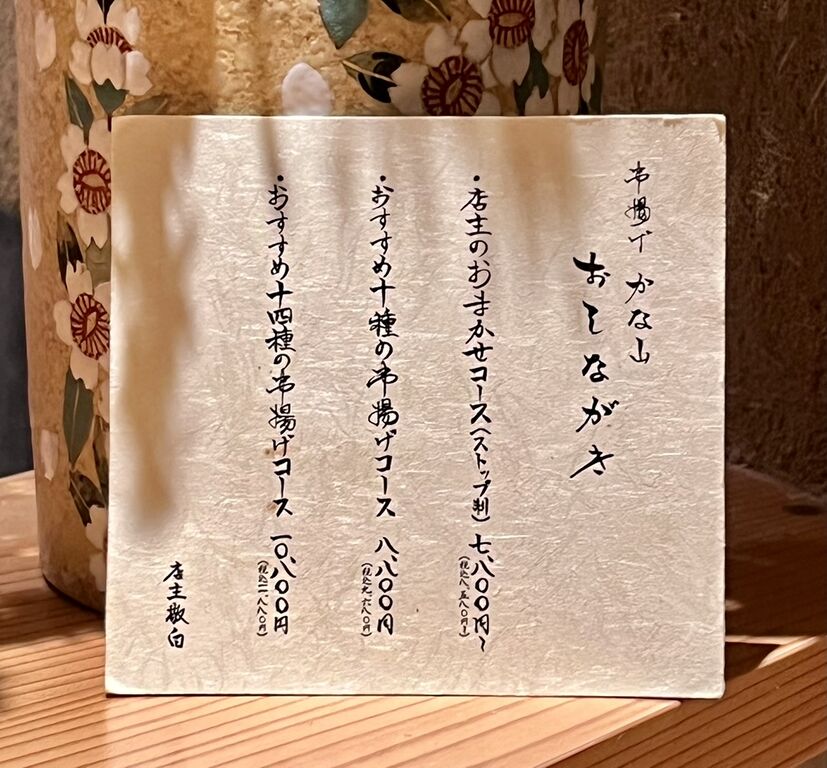 串揚げ かな山
おしながき
・店主のおまかせコース(ストップ制) 七、八〇〇円〜
(税込八、五八〇円〜)
・おすすめ十種の串揚げコース 八、八〇〇円
(税込九、六八〇円)
・おすすめ十四種の串揚げコース 一〇、八〇〇円
(税込一一、八八〇円)
店主敬白